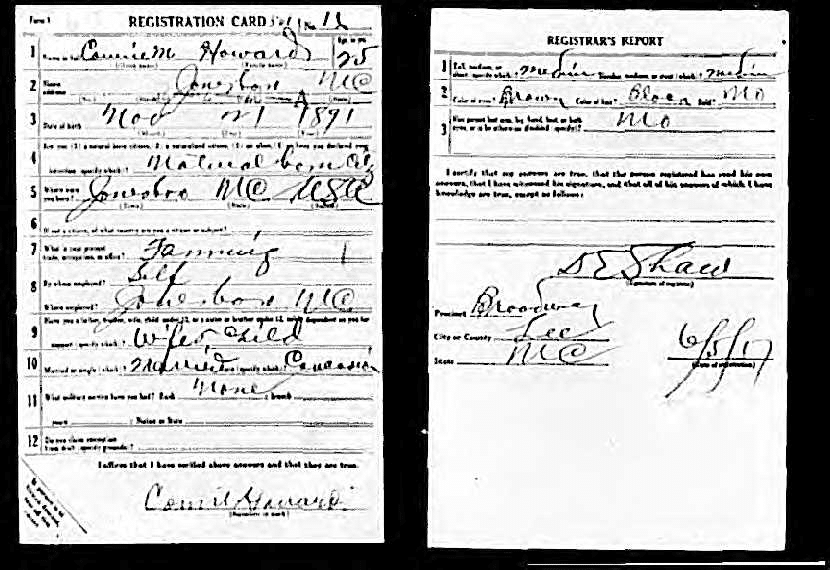 Form 1
REGISTRATION CARD No. 11
1 Name in full Connie M Howard Age, in yrs 25
(Given name) (Family name)
2 Home address Jonesboro NC
(No.) (Street) (State)
3 Date of birth Nov 21 1891
(Month) (Day) (Year)
4 Are you (1) a natural born citizen, (2) a naturalized citizen, (3) an alien, (4) or have you declared your
intention (specify which)? Natural born Citz
5 Where were you born? Jonesboro NC USA
(Town) (State) (Nation)
6 If not a citizen, of what country are you a citizen or subject?
7 What is your present trade, occupation, or office? Farming
8 By whom employed? Self
Where employed? Jonesboro NC
9 Have you a father, mother, wife, child under 12, or a sister or brother under 12, solely dependent on you for
support (specify which)? Wife & Child
10 Married or single (which)? Married Race (specify which)? Caucasian
11 What military service have you had? Rank None ; branch
years ; Nation or State
12 Do you claim exemption from draft (specify grounds)?
I affirm that I have verified above answers and that they are true.
Connie Howard
(Signature or mark)
REGISTRAR'S REPORT
1 Tall, medium, or short (specify which)? Medium Slender, medium, or stout (which)? Medium
2 Color of eyes? Brown Color of hair? Black Bald? No
3 Has person lost arm, leg, hand, foot, or both
eyes, or is he otherwise disabled (specify)? No
I certify that my answers are true, that the person registered has read his own
answers, that I have witnessed his signature, and that all of his answers of which I have
knowledge are true, except as follows:
D E Shaw
(Signature of registrar)
Precinct Broadway
City or County Lee
State NC 6/5/17
(Date of registration)